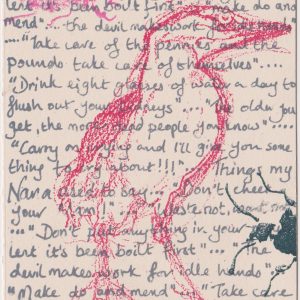 lent it's been boilt first"... "make do and
mend"... the devil makes work for idle hands"
...."Take care of the pennies and the
pounds take care of themselves"....
"Drink eight glasses of water a day to
flush out your kidneys".... "The older you
get, the more dead people you know"....
"Carry on crying and I'll give you some
thing to cry about!!!" Things my
Nana used to say... "Don't cheek
your "... "Waste not, want not
..."Don't put anything in your
lent it's been boilt first"... "The
devil makes work for idle hands"...
"Make do and mend"... "Take care